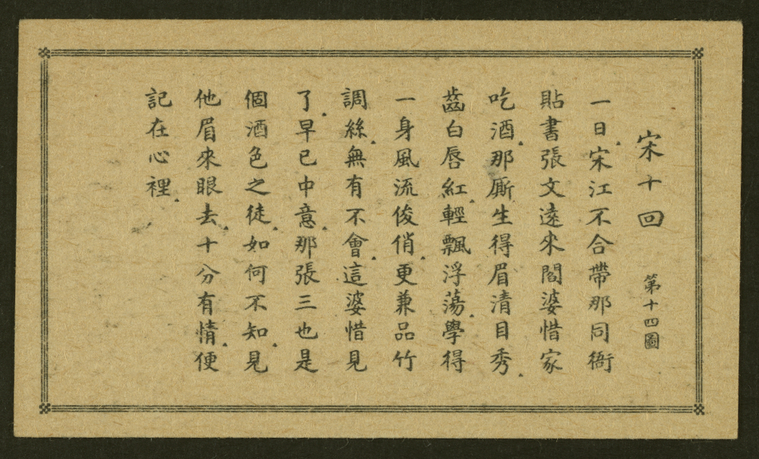 宋十回
第十四圖
一日。宋江不合帶那同衙
貼書張文遠來閻婆惜家
吃酒。那厮生得眉清目秀。
齒白唇紅。輕飄浮蕩。學得
一身風流俊俏。更兼品竹
調絲。無有不會。這婆惜見
了。早已中意。那張三也是
個酒色之徒。如何不知。見
他眉來眼去。十分有情。便
記在心裡。